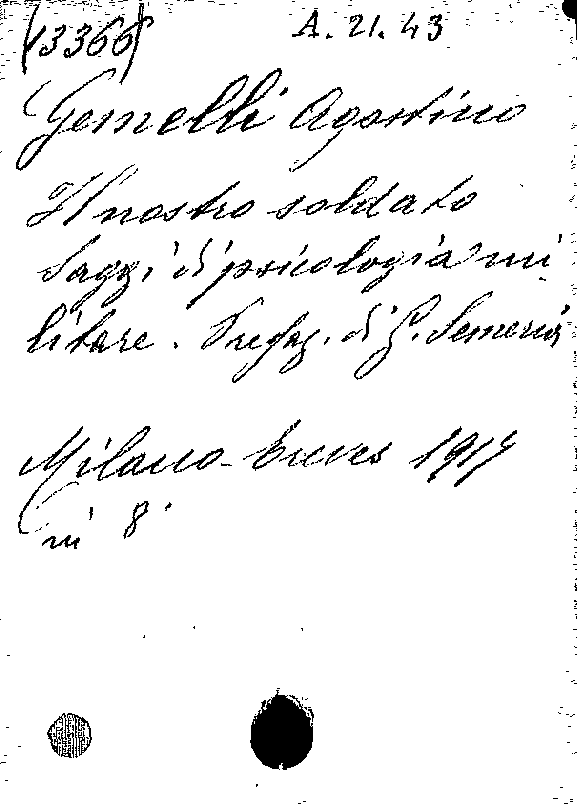 (13366) A. 21. 43
Gemelli Agostino
Il nostro soldato
Saggi di psicologia mi
litare. Prefaz. di P. Semeria
Milano - Treves 1917
in 8°